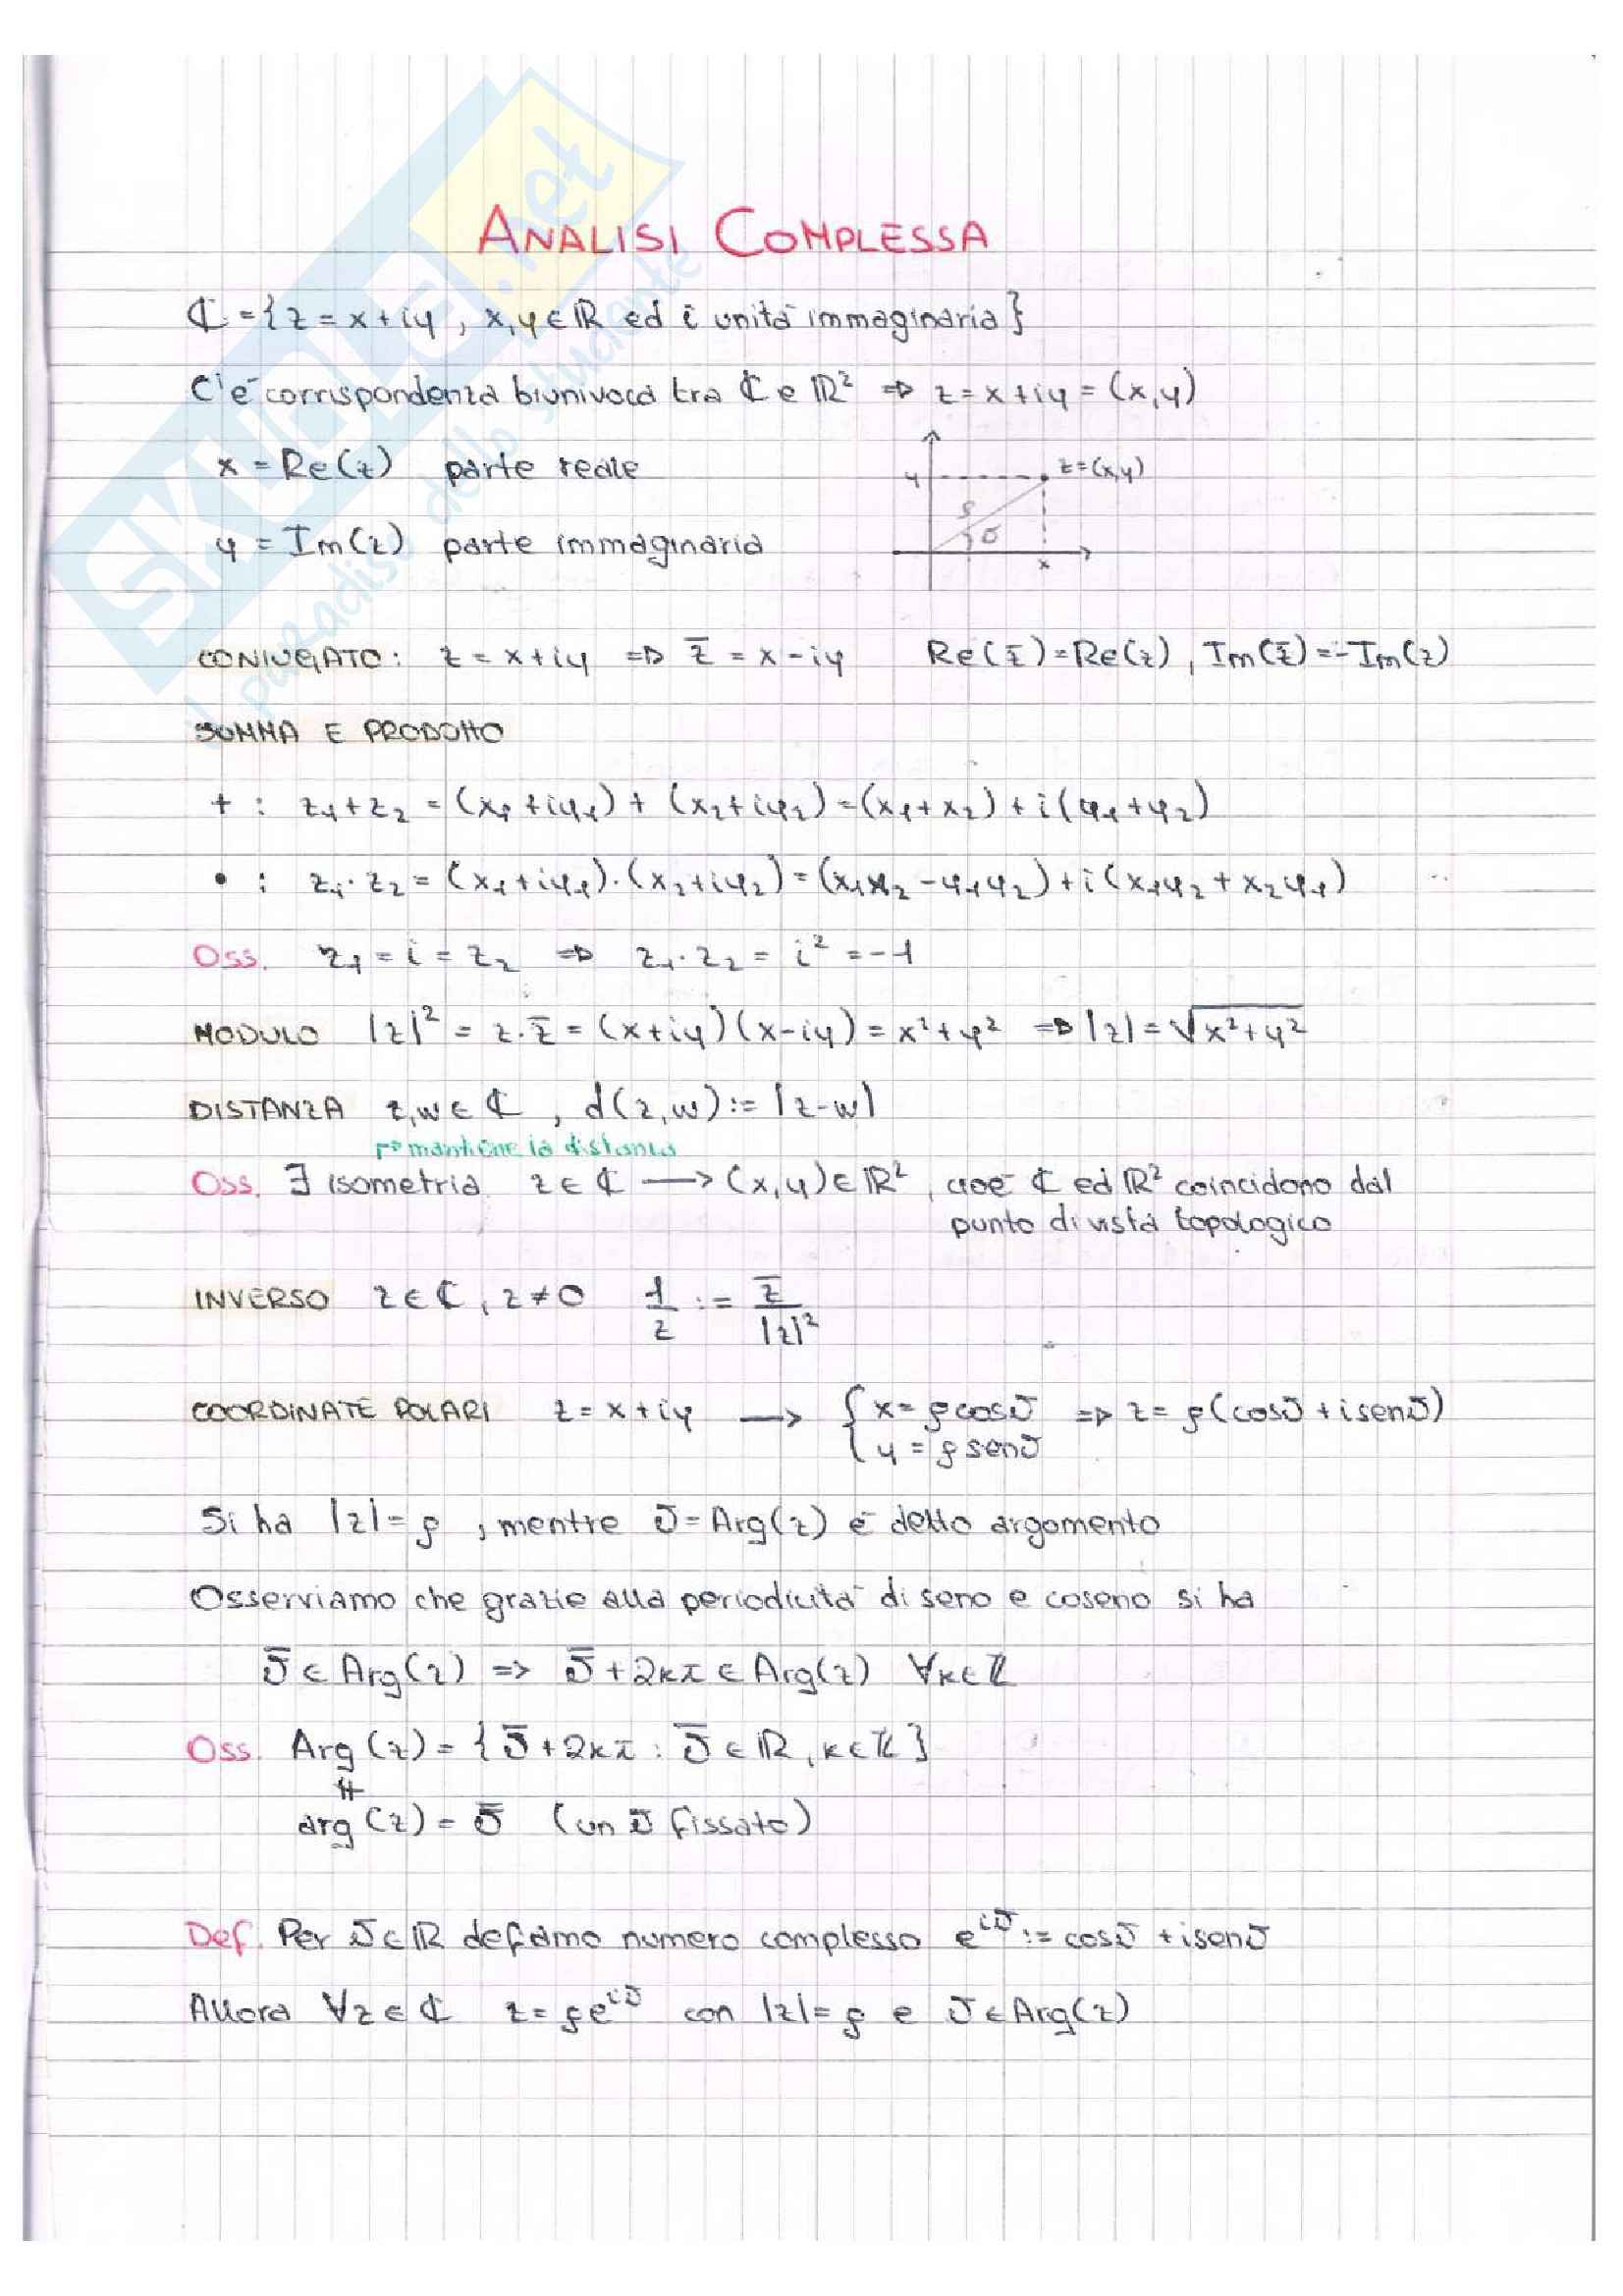 SKUOLA.net
il paradiso dello studente
ANALISI COMPLESSA
ℂ = {z = x+iy, x,y∈ℝ ed i unità immaginaria}
C'è corrispondenza biunivoca tra ℂ e ℝ² ⇒ z = x+iy = (x,y)
x = Re(z) parte reale
y z=(x,y)
ρ
ϑ
x
y = Im(z) parte immaginaria
CONIUGATO: z = x+iy ⇒ z̄ = x-iy Re(z̄)=Re(z), Im(z̄)=-Im(z)
SOMMA E PRODOTTO
+ : z₁+z₂ = (x₁+iy₁) + (x₂+iy₂) = (x₁+x₂) + i(y₁+y₂)
• : z₁·z₂ = (x₁+iy₁)·(x₂+iy₂) = (x₁x₂-y₁y₂)+i(x₁y₂+x₂y₁)
Oss. z₁ = i = z₂ ⇒ z₁·z₂ = i² = -1
MODULO |z|² = z·z̄ = (x+iy)(x-iy) = x²+y² ⇒ |z| = √(x²+y²)
DISTANZA z,w∈ℂ, d(z,w) := |z-w|
mantiene la distanza
Oss. ∃ isometria z∈ℂ ⟶ (x,y)∈ℝ², cioè ℂ ed ℝ² coincidono dal
punto di vista topologico
INVERSO z∈ℂ, z≠0 1/z := z̄/|z|²
COORDINATE POLARI z = x+iy ⟶ { x = ρcosϑ ⇒ z = ρ(cosϑ + isenϑ)
y = ρsenϑ
Si ha |z| = ρ, mentre ϑ = Arg(z) è detto argomento
Osserviamo che grazie alla periodicità di seno e coseno si ha
ϑ̄ ∈ Arg(z) => ϑ̄+2kπ ∈ Arg(z) ∀k∈ℤ
Oss. Arg(z) = {ϑ̄+2kπ : ϑ̄∈ℝ, k∈ℤ}
≠
arg(z) = ϑ̄ (un ϑ̄ fissato)
Def. Per ϑ∈ℝ definiamo numero complesso e^{iϑ} := cosϑ + isenϑ
Allora ∀z∈ℂ z = ρe^{iϑ} con |z| = ρ e ϑ∈Arg(z)